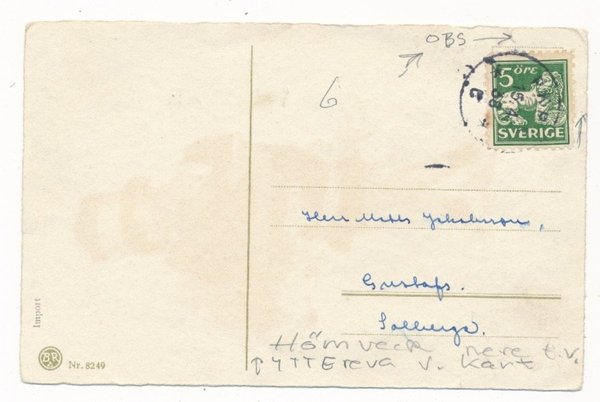 OBS →
6
5 öre
SVERIGE
Herr
Gustafs.
Solberga.
Hörnveck nere t.v.
↑ YTTEREVA V. KANT
Import
BR
Nr. 8249